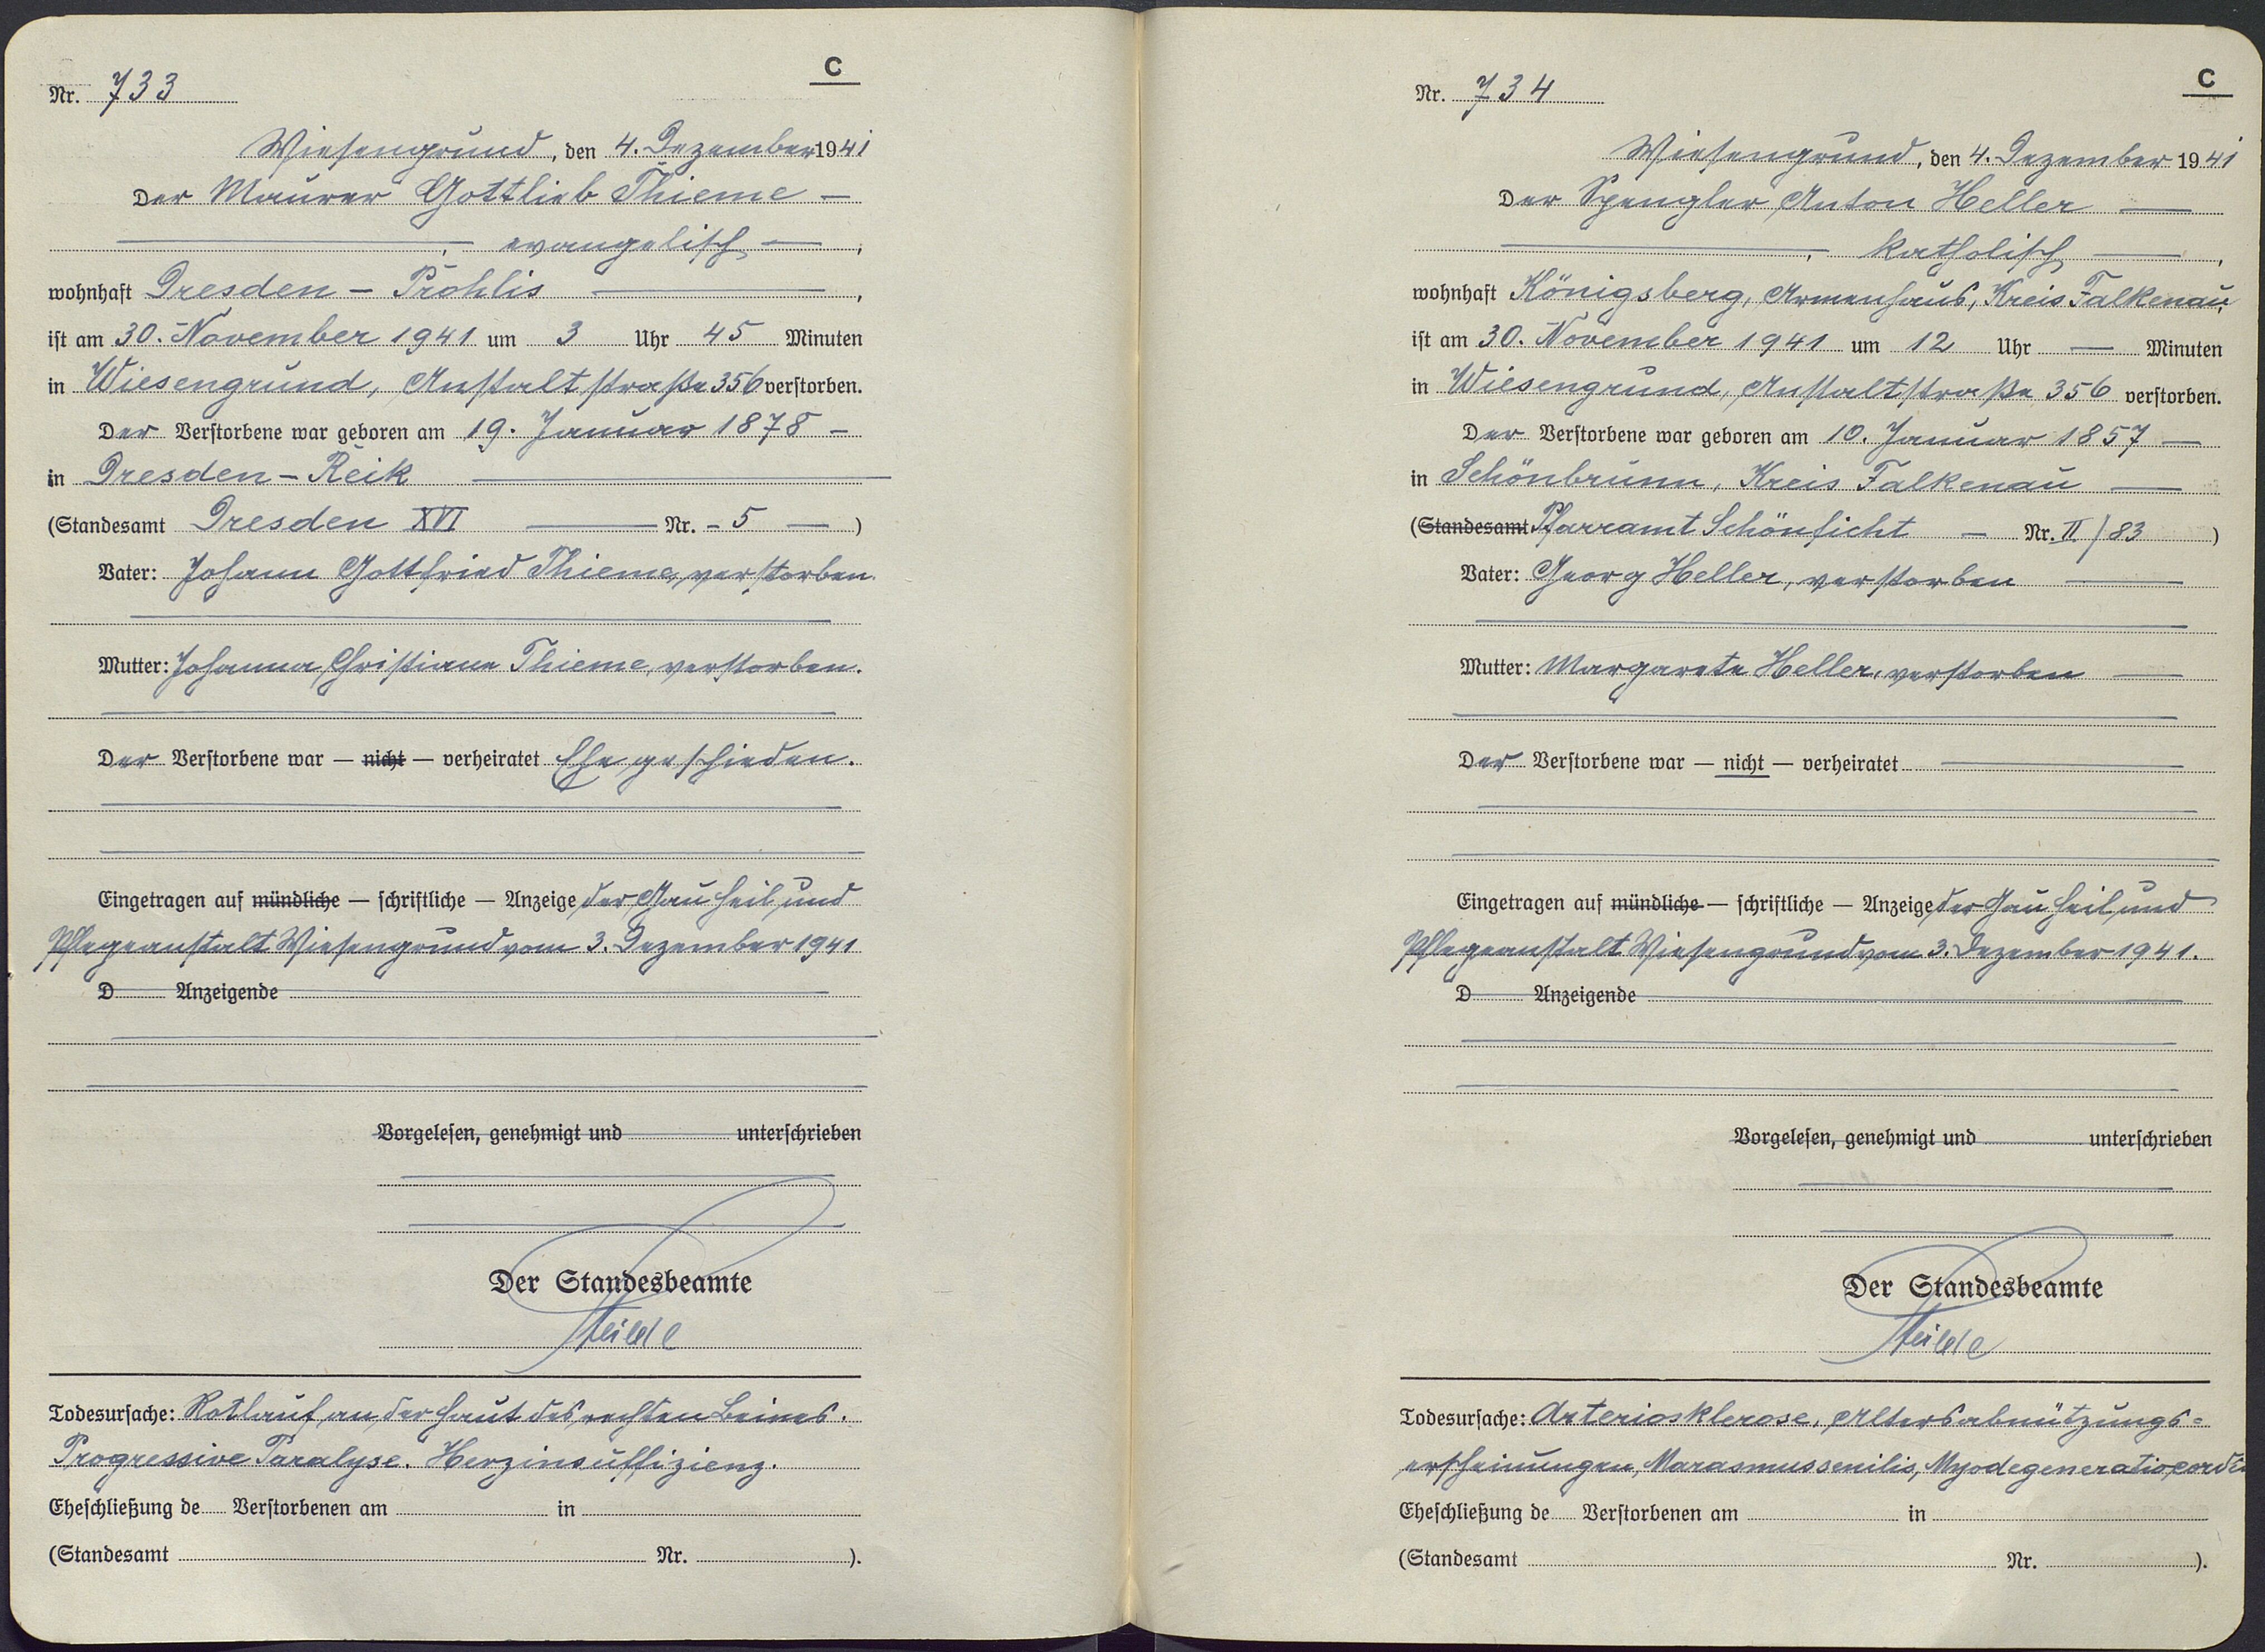 C
Nr. 733
Wiesengrund, den 4. Dezember 1941
Der Maurer Gottlieb Thieme —
—, evangelisch —,
wohnhaft Dresden – Prohlis —,
ist am 30. November 1941 um 3 Uhr 45 Minuten
in Wiesengrund, Anstaltstraße 356 verstorben.
Der Verstorbene war geboren am 19. Januar 1878 –
in Dresden – Reik —
(Standesamt Dresden XVI — Nr. – 5 — )
Vater: Johann Gottfried Thieme, verstorben.
Mutter: Johanna Christiane Thieme, verstorben.
Der Verstorbene war — nicht — verheiratet Ehe geschieden.
Eingetragen auf mündliche — schriftliche — Anzeige der Gau Heil und
Pflegeanstalt Wiesengrund vom 3. Dezember 1941
D Anzeigende
Vorgelesen, genehmigt und unterschrieben
Der Standesbeamte
Todesursache: Rotlauf an der Haut des rechten Beines.
Progressive Paralyse. Herzinsuffizienz.
Eheschließung de Verstorbenen am in
(Standesamt Nr. ).
C
Nr. 734
Wiesengrund, den 4. Dezember 1941
Der Spengler Anton Heller —
—, katholisch —,
wohnhaft Königsberg, Armenhaus, Kreis Falkenau,
ist am 30. November 1941 um 12 Uhr — Minuten
in Wiesengrund, Anstaltstraße 356 verstorben.
Der Verstorbene war geboren am 10. Januar 1857 —
in Schönbrunn, Kreis Falkenau —
(Standesamt Pfarramt Schönficht – Nr. II/83 )
Vater: Georg Heller, verstorben —
Mutter: Margarete Heller, verstorben —
Der Verstorbene war — nicht — verheiratet —
Eingetragen auf mündliche — schriftliche — Anzeige der Gau Heil und
Pflegeanstalt Wiesengrund vom 3. Dezember 1941.
D Anzeigende
Vorgelesen, genehmigt und unterschrieben
Der Standesbeamte
Todesursache: Arteriosklerose, Altersabnützungs=
erscheinungen, Marasmus senilis, Myodegeneratio cordis
Eheschließung de Verstorbenen am in
(Standesamt Nr. ).